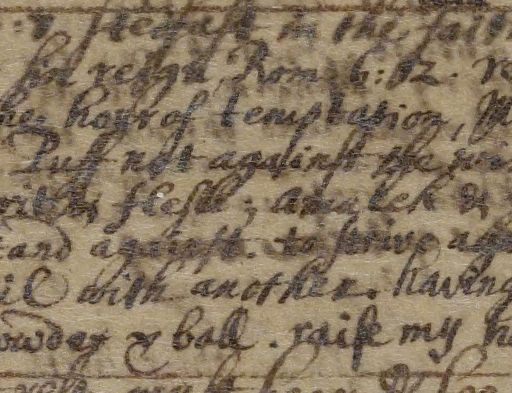 & stedfast in the faith
sin reign Rom. 6:12. re
he hour of temptation, M
Puff not against the wi
with flesh; amalek &
tand against. to strive aga
il with another. having
owder & ball. raise my he